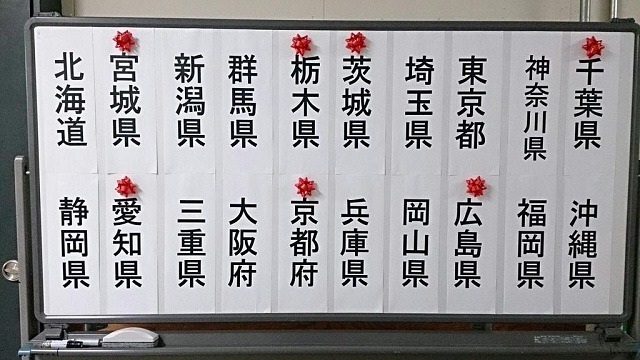 北海道
宮城県
新潟県
群馬県
栃木県
茨城県
埼玉県
東京都
神奈川県
千葉県
静岡県
愛知県
三重県
大阪府
京都府
兵庫県
岡山県
広島県
福岡県
沖縄県